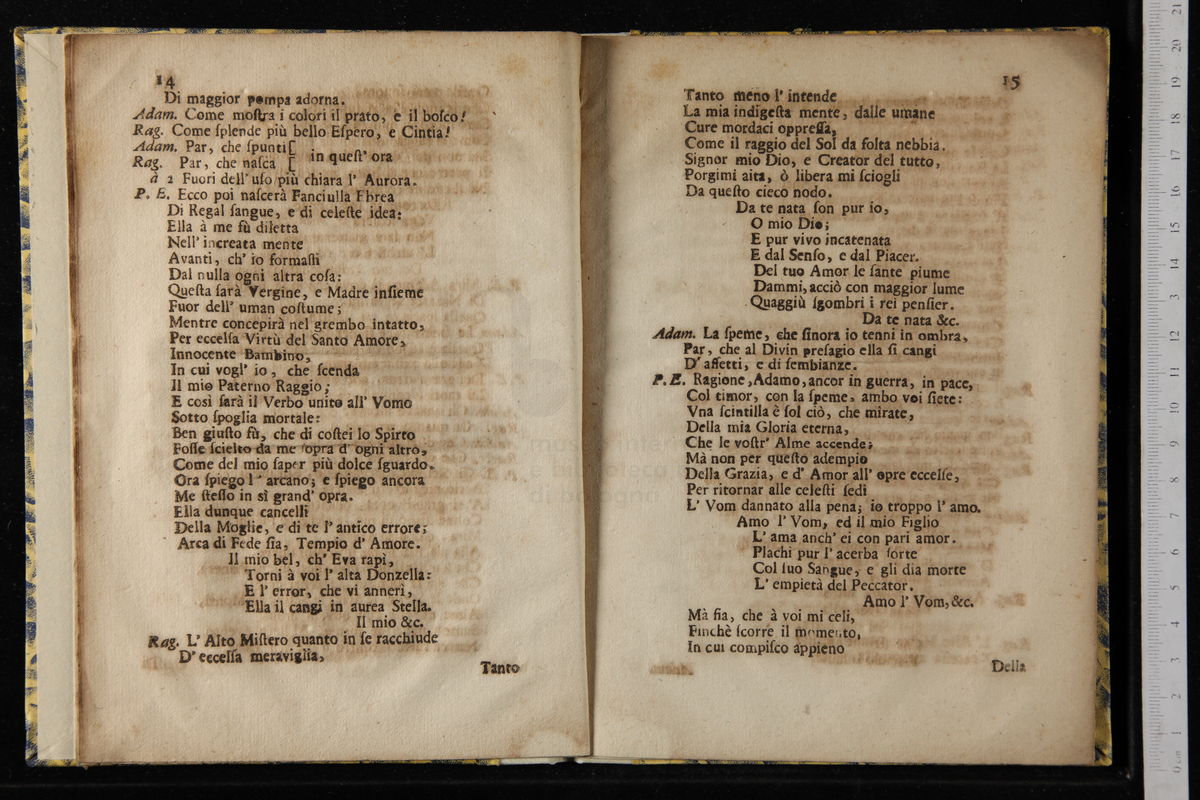 14
Di maggior pompa adorna.
Adam. Come moſtra i colori il prato, e il boſco!
Rag. Come ſplende più bello Eſpero, e Cintia!
Adam. Par, che ſpunti [
in queſt' ora
Rag. Par, che naſca [
à 2 Fuori dell' uſo più chiara l' Aurora.
P. E. Ecco poi naſcerà Fanciulla Ebrea
Di Regal ſangue, e di celeſte idea:
Ella à me fù diletta
Nell' increata mente
Avanti, ch' io formaſſi
Dal nulla ogni altra coſa:
Queſta ſarà Vergine, e Madre inſieme
Fuor dell' uman coſtume;
Mentre concepirà nel grembo intatto,
Per eccelſa Virtù del Santo Amore,
Innocente Bambino,
In cui vogl' io, che ſcenda
Il mio Paterno Raggio;
E così ſarà il Verbo unito all' Vomo
Sotto ſpoglia mortale:
Ben giuſto fù, che di coſtei lo Spirto
Foſſe ſcielto da me ſopra d' ogni altro,
Come del mio ſaper più dolce ſguardo.
Ora ſpiego l' arcano; e ſpiego ancora
Me ſteſſo in sì grand' opra.
Ella dunque cancelli
Della Moglie, e di te l' antico errore;
Arca di Fede ſia, Tempio d' Amore.
Il mio bel, ch' Eva rapì,
Torni à voi l' alta Donzella:
E l' error, che vi annerì,
Ella il cangi in aurea Stella.
Il mio &c.
Rag. L' Alto Miſtero quanto in ſe racchiude
D' eccelſa meraviglia,
Tanto
15
Tanto meno l' intende
La mia indigeſta mente, dalle umane
Cure mordaci oppreſſa,
Come il raggio del Sol da folta nebbia.
Signor mio Dio, e Creator del tutto,
Porgimi aita, ò libera mi ſciogli
Da queſto cieco nodo.
Da te nata ſon pur io,
O mio Dio;
E pur vivo incatenata
E dal Senſo, e dal Piacer.
Del tuo Amor le ſante piume
Dammi, acciò con maggior lume
Quaggiù ſgombri i rei penſier.
Da te nata &c.
Adam. La ſpeme, che ſinora io tenni in ombra,
Par, che al Divin preſagio ella ſi cangi
D' affetti, e di ſembianze.
P. E. Ragione, Adamo, ancor in guerra, in pace,
Col timor, con la ſpeme, ambo voi ſiete:
Vna ſcintilla è ſol ciò, che mirate,
Della mia Gloria eterna,
Che le voſtr' Alme accende;
Mà non per queſto adempio
Della Grazia, e d' Amor all' opre eccelſe,
Per ritornar alle celeſti ſedi
L' Vom dannato alla pena; io troppo l' amo.
Amo l' Vom, ed il mio Figlio
L' ama anch' ei con pari amor.
Plachi pur l' acerba ſorte
Col ſuo Sangue, e gli dia morte
L' empietà del Peccator.
Amo l' Vom, &c.
Mà fia, che à voi mi celi,
Finchè ſcorre il momento,
In cui compiſco appieno
Della